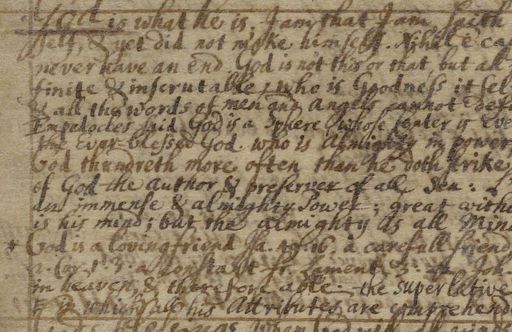 God is what he is, I am that I am, saith
self, & yet did not make himself. Nihil e ca
never have an end God is not this or that but all
finite & inscrutable, who is Goodness it sel
& all the words of men and Angels cannot defi
Empedocles said God is a Sphere whose center is Eve
the Ever-blessed God who is Almighty in power
God thundreth more often than he doth strike
of God the author & preserver of all
An immense & almighty Power; great witho
is his mind; but the almighty is all Mind
* God is a loving friend Ja. a carefull friend
2. Cor. 1. 3. a constant fr. Lament. 3. Joh
in heaven, & therefore able the superlative
in which all his Attributes are comprehende